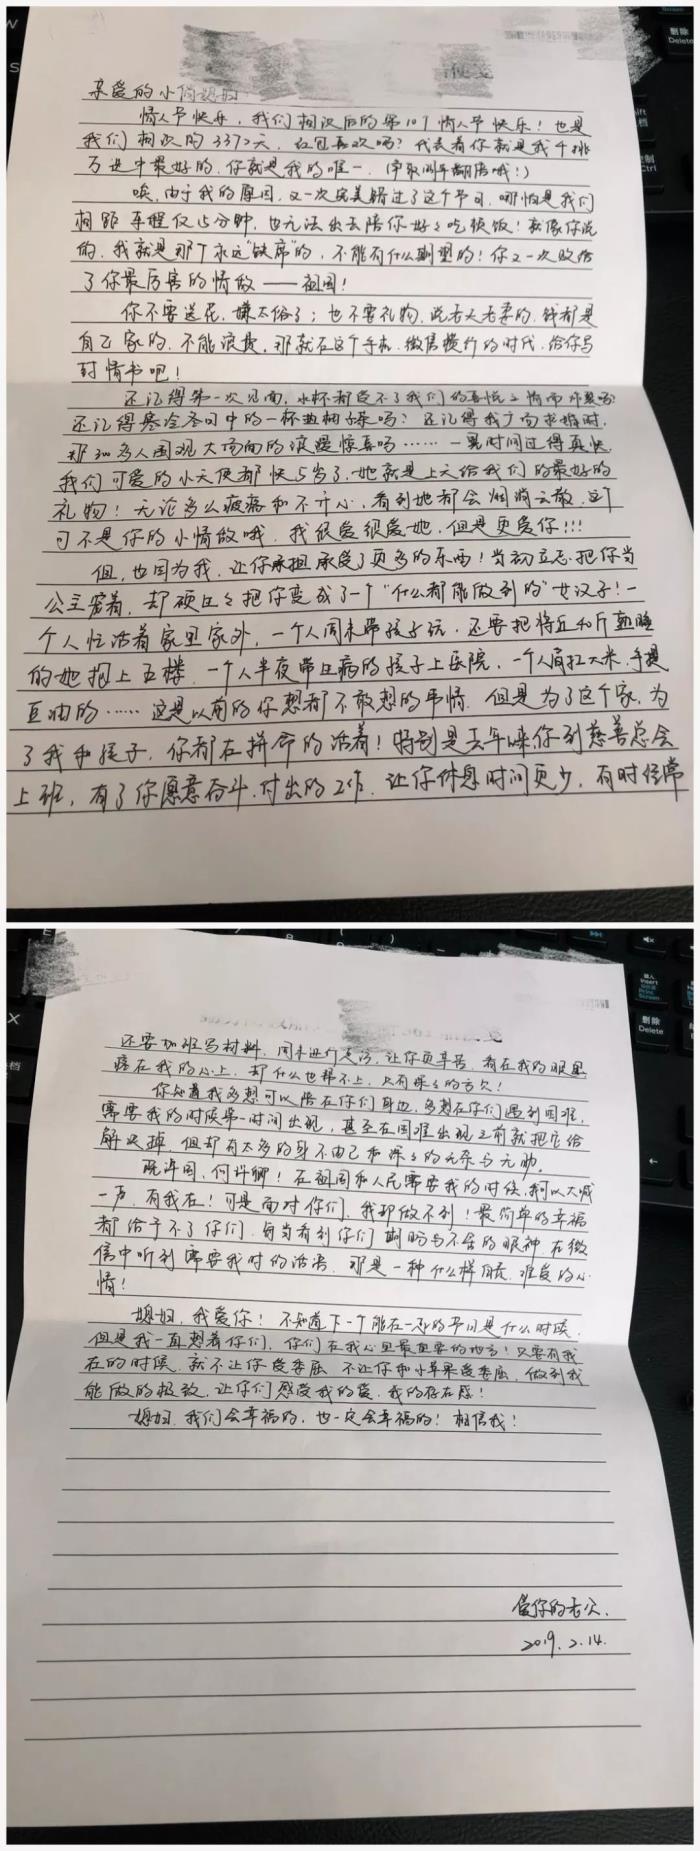 便笺
删除
Delete
亲爱的小
情人节快乐，我们相识后的第10个情人节快乐！也是
我们相识的3372天，红包喜欢吗？代表着你就是我千挑
万选中最好的，你就是我的唯一．(争取明年翻倍哦！)
唉，由于我的原因，又一次完美错过了这个节日，哪怕是我们
相距车程仅15分钟，也无法出去陪你好好吃顿饭！就像你说
的，我就是那个永远“缺席”的，不能有什么期望的！你又一次败给
了你最厉害的情敌——祖国！
你不要送花，嫌太俗了；也不要礼物，说老夫老妻的，钱都是
自己家的，不能浪费，那就在这个手机、微信横行的时代，给你写
封情书吧！
还记得第一次见面，水杯都受不了我们的喜悦之情而炸裂吗？
还记得寒冷冬日中的一杯热柚子茶吗？还记得我广场求婚时，
那300多人围观大场面的浪漫惊喜吗……一晃时间过得真快，
我们可爱的小天使都快5岁了，她就是上天给我们的最好的
礼物！无论多么疲惫和不开心，看到她都会烟消云散，这个
可不是你的小情敌哦，我很爱很爱她，但是更爱你!!!
但，也因为我，让你承担承受了更多的东西！当初立志把你当
公主宠着，却硬生生把你变成了一个“什么都能做到的”女汉子！一
个人忙活着家里家外，一个人周末带孩子玩，还要把将近40斤熟睡
的她抱上五楼，一个人半夜带生病的孩子上医院，一个人肩扛大米、手提
豆油的……这是以前的你想都不敢想的事情，但是为了这个家，为
了我和孩子，你都在拼命的活着！特别是去年咪你到慈善总会
上班，有了你愿意奋斗、付出的工作，让你休息时间更少，有时经常
删除
Delete
还要加班写材料，周末进行走访，让你更辛苦，看在我的眼里
疼在我的心上，却什么也帮不上，只有深深的亏欠！
你知道我多想可以陪在你们身边，多想在你们遇到困难，
需要我的时候第一时间出现，甚至在困难出现之前就把它给
解决掉，但却有太多的身不由己和深深的无奈与无助。
既许国，何许卿！在祖国和人民需要我的时候，我可以大喊
一声，有我在！可是面对你们，我却做不到！最简单的幸福
都给予不了你们，每当看到你们期盼与不舍的眼神，在微
信中听到需要我时的话语，那是一种什么样自责、难受的心
情！
媳妇，我爱你！不知道下一个能在一起的节日是什么时候，
但是我一直想着你们，你们在我心里最重要的地方！只要有我
在的时候，就不让你受委屈，不让你和小苹果受委屈，做到我
能做的极致，让你们感受我的爱，我的存在感！
媳妇，我们会幸福的，也一定会幸福的！相信我！
爱你的老公．
2019．2．14．